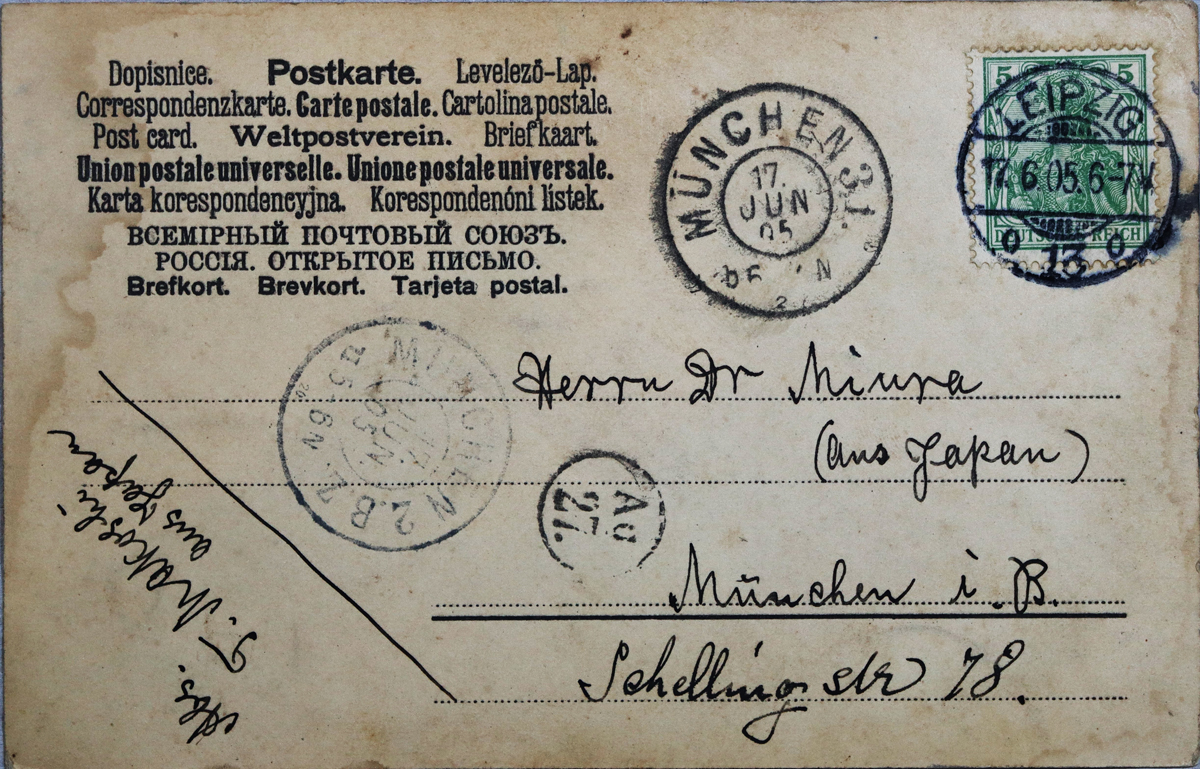 Dopisnice. Postkarte. Levelező-Lap.
Correspondenzkarte. Carte postale. Cartolina postale.
Post card. Weltpostverein. Briefkaart.
Union postale universelle. Unione postale universale.
Karta korespondencyjna. Korespondenóni lístek.
ВСЕМІРНЫЙ ПОЧТОВЫЙ СОЮЗЪ.
РОССІЯ. ОТКРЫТОЕ ПИСЬМО.
Brefkort. Brevkort. Tarjeta postal.
MÜNCHEN 31.
17.
JUN
05
5 5
DEUTSCHES REICH
LEIPZIG
17.6.05.6-7N
13
MÜNCHEN 2.B.Z.
JUN
Herrn Dr Miura
(aus Japan)
Ad
27.
München i. B.
Schellingstr 78.
Abs.
T. Nakoshi
aus Japan